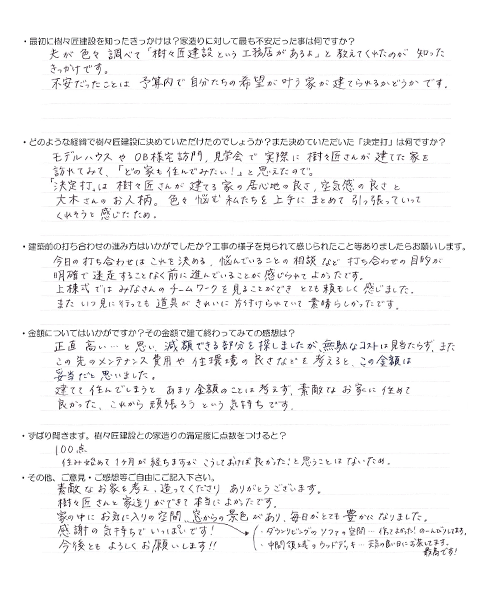 ・最初に樹々匠建設を知ったきっかけは？家造りに対して最も不安だった事は何ですか？
夫が色々調べて「樹々匠建設という工務店があるよ」と教えてくれたのが 知った
きっかけです。
不安だったことは 予算内で自分たちの希望が叶う家が建てられるかどうかです。
・どのような経緯で樹々匠建設に決めていただけたのでしょうか？また決めていただいた「決定打」は何ですか？
モデルハウスや OB様宅訪問、見学会で 実際に 樹々匠さんが建てた家を
訪れてみて、「どの家も住んでみたい！」と思えたので。
「決定打」は 樹々匠さんが建てる家の居心地の良さ、空気感の良さと
大木さんのお人柄。色々悩む私たちを上手にまとめて引っ張っていって
くれそうと感じたため。
・建築前の打ち合わせの進み方はいかがでしたか？工事の様子を見られて感じられたこと等ありましたらお願いします。
今日の打ち合わせはこれを決める、悩んでいることの相談など 打ち合わせの目的が
明確で迷走することなく前に進んでいることが感じられてよかったです。
上棟式では みなさんのチームワークを見ることができ とても頼もしく感じました。
また いつ見に行っても 道具がきれいに片付けられていて素晴らしかったです。
・金額についてはいかがですか？その金額で建て終わってみての感想は？
正直 高い…と思い、減額できる部分も探しましたが、無駄なコストは見当たらず、また
この先のメンテナンス費用や 住環境の良さなどを考えると、この金額は
妥当だと思いました。
建てて住んでしまうと あまり金額のことは考えず、素敵なお家に住めて
良かった、これから頑張ろうという気持ちです。
・ずばり聞きます。樹々匠建設との家造りの満足度に点数をつけると？
100点
住み始めて1ヶ月が経ちますが こうしておけば良かった！と思うことはないため。
・その他、ご意見・ご感想等ご自由にご記入下さい。
素敵なお家を考え、造ってくださり ありがとうございます。
樹々匠さんと家造りができて本当によかったです。
家の中にお気に入りの空間、窓からの景色があり、毎日がとても豊かになりました。
感謝の気持ちでいっぱいです！
今後ともよろしくお願いします!!
・ダウンリビングのソファの空間…作ってよかった！のんびりしてます。
・中間領域のウッドデッキ…
最高です！